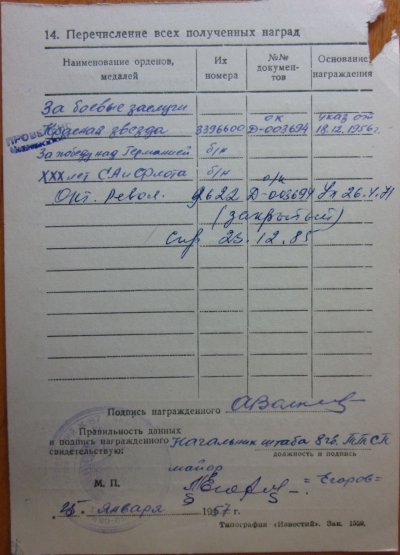 14. Перечисление всех полученных наград
Наименование орденов, медалей
Их номера
№№ документов
Основание награждения
За боевые заслуги
Красная звезда 3396600 ок Д-003694 Указ от 18.12.1956 г.
За победу над Германией б/н
XXX лет СА и Флота б/н о/к
Окт. Револ. 9622 Д-003694 Ук 26.4.71
(закрытый)
23.12.85
Подпись награжденного
Правильность данных
и подпись награжденного
свидетельствую:
Начальник штаба 8 гв. ТТСП
должность и подпись
майор
М. П.
=Егоров=
25. января 1957 г.
Типография «Известий». Зак. 1559.